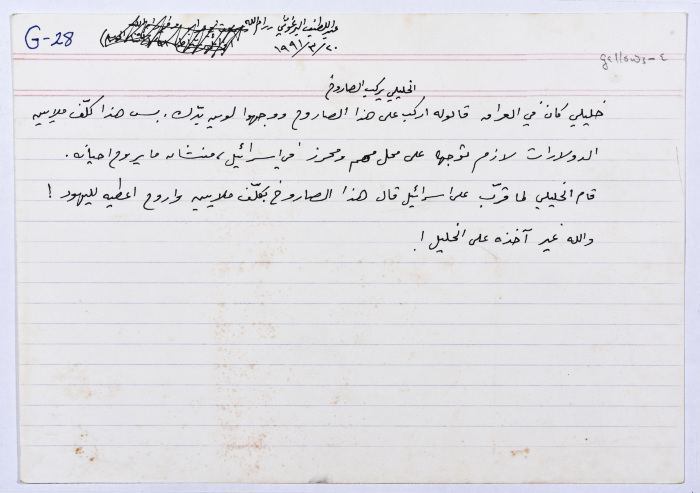 G-28
عبد اللطيف البرغوثي رام الله
٢٠/٣/١٩٩١
gallows-2
الخليلي يركب الصاروخ
خليلي كان في العراق قالوله اركب على هذا الصاروخ ووجهوا لوين بدّك، بس هذا كلّف ملايين
الدولارات لازم توجها على محل مهم ومحرز في اسرائيل، منشان ما يروح احيانه.
قام الخليلي لما قرّب على اسرائيل قال هذا الصاروخ بكلّف ملايين واروح اعطيه لليهود !
والله غير آخذه على الخليل !